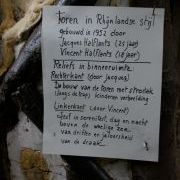 Toren in Rhijnlandse stijl
gebouwd in 1952 door
Jacques Holtlants (25 jaar)
Vincent Holtlants (18 jaar)
Reliefs in binnenruimte:
Rechterkant (door Jacques)
De bouw van de toren met strodak
(langs de trap) kinderen verbeelding
Linkerkant (door Vincent)
Geest in sereniteit, dag en nacht
boven de woelige zee
van driften en jaloersheid
van de draak